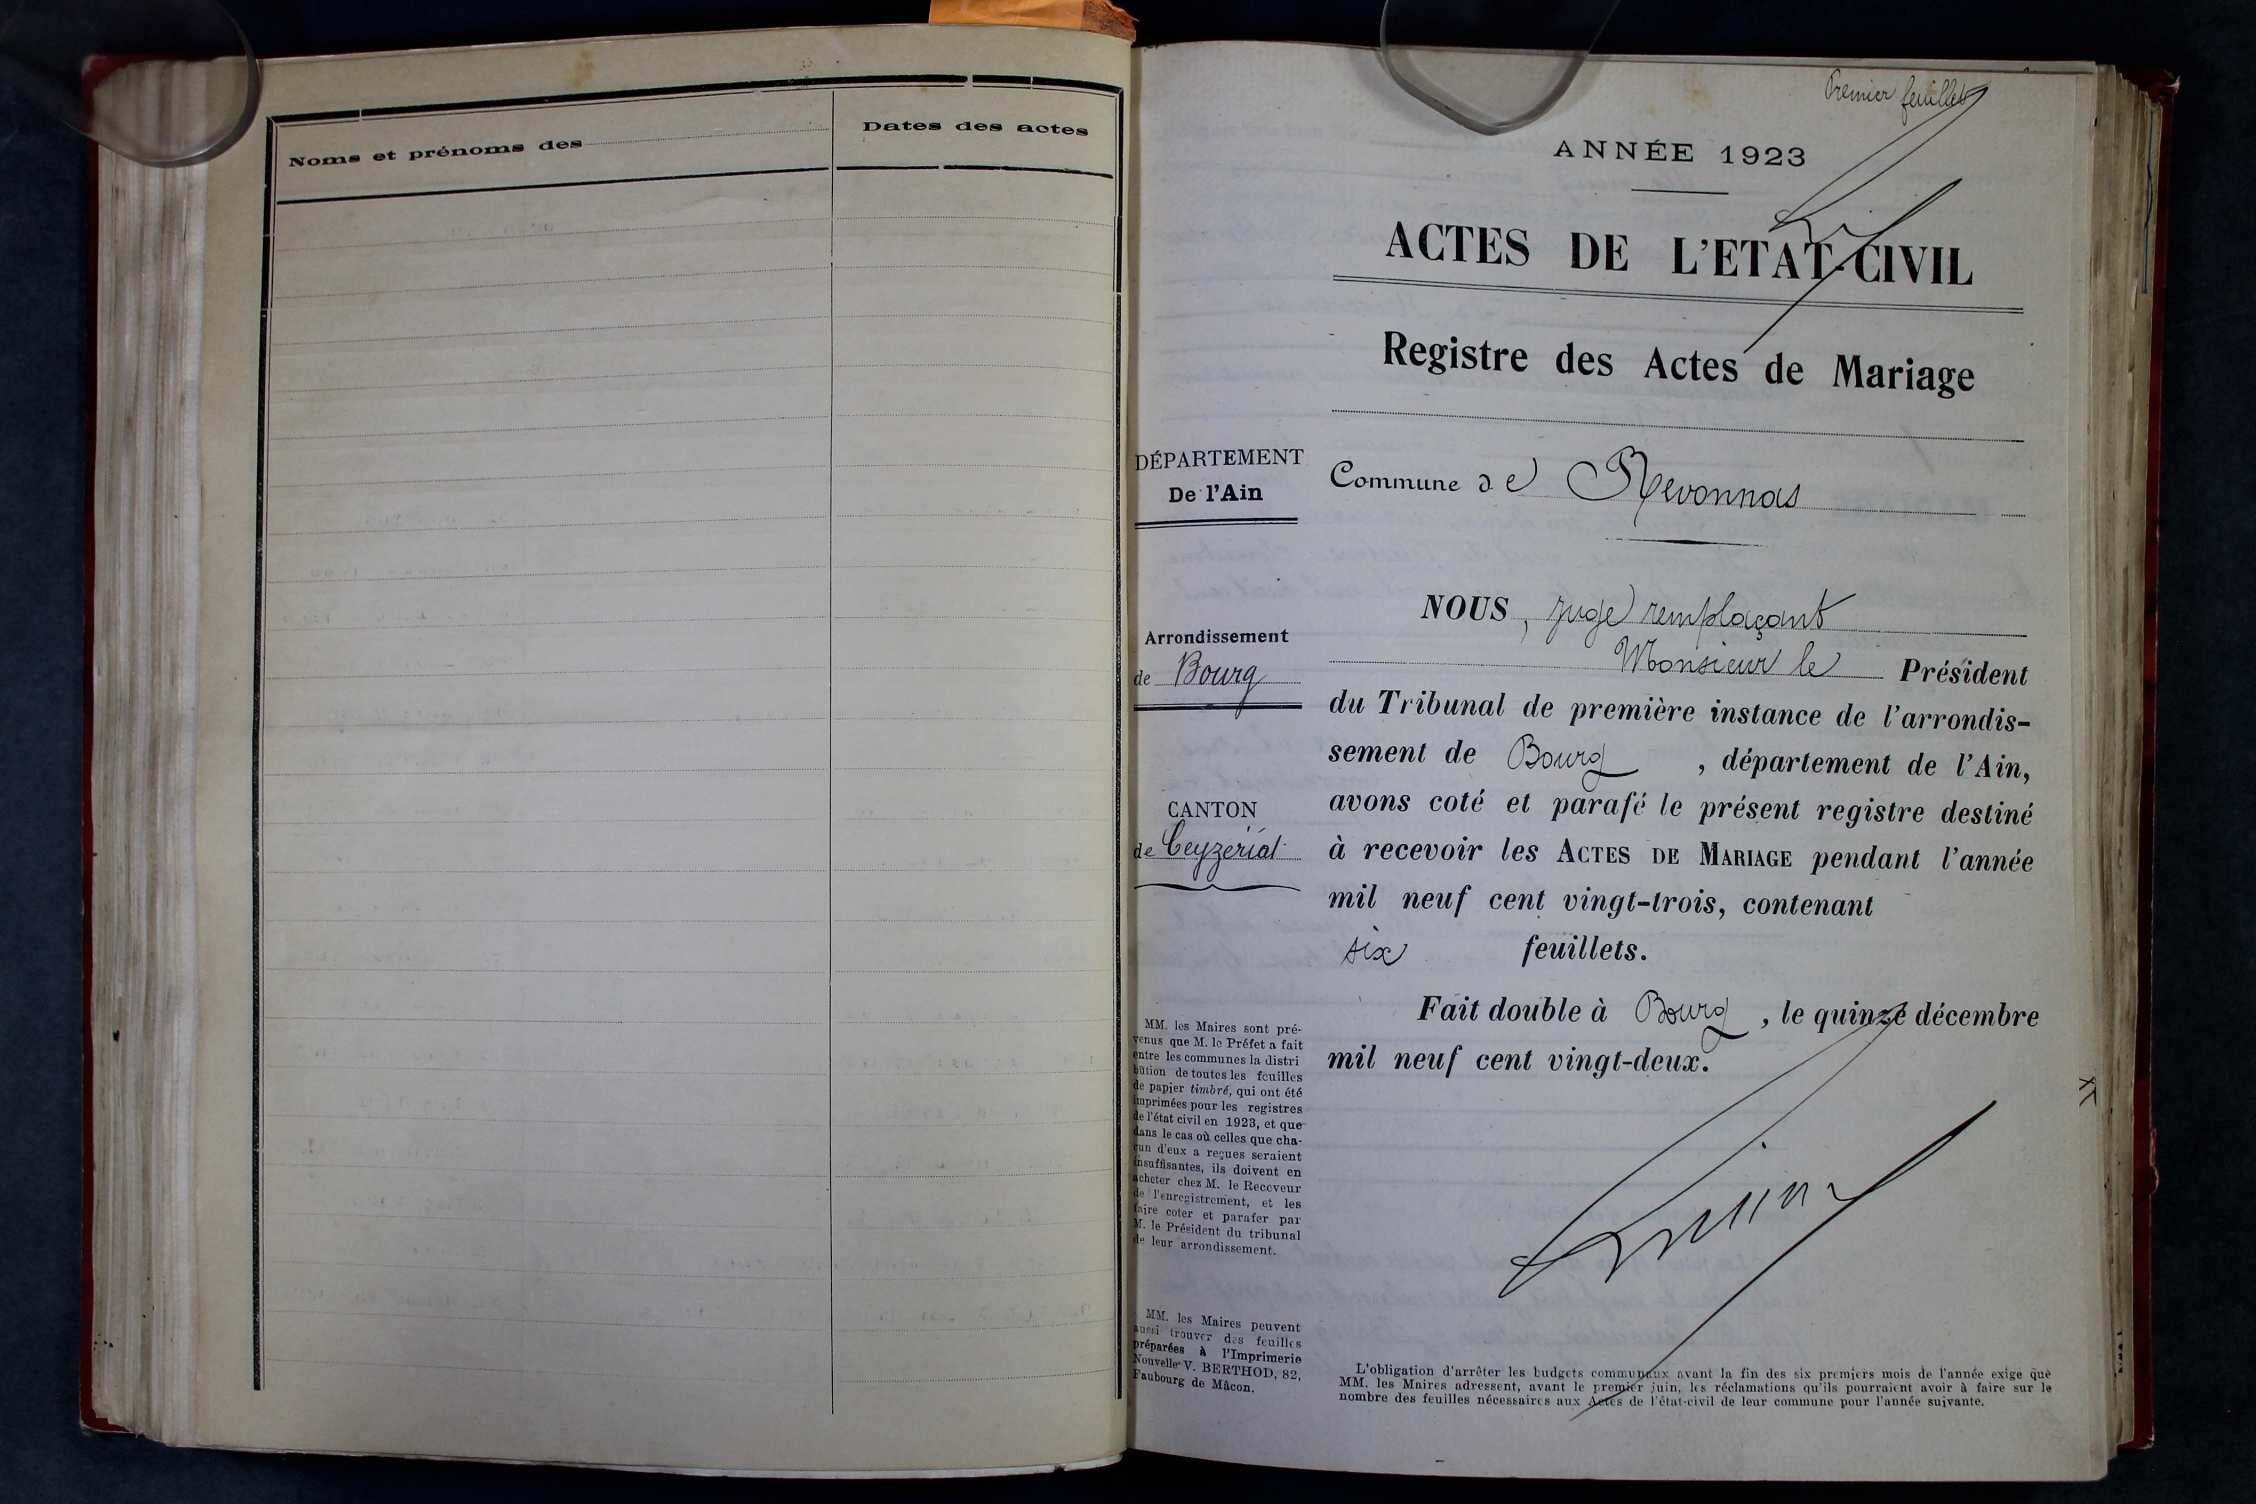 Noms et prénoms des
Dates des actes
Premier feuillet
ANNÉE 1923
ACTES DE L'ETAT-CIVIL
Registre des Actes de Mariage
DÉPARTEMENT
De l'Ain
Commune de Revonnas
Arrondissement
de Bourg
CANTON
de Ceyzériat
NOUS, juge remplaçant
Monsieur le Président
du Tribunal de première instance de l'arrondis-
sement de Bourg, département de l'Ain,
avons coté et parafé le présent registre destiné
à recevoir les ACTES DE MARIAGE pendant l'année
mil neuf cent vingt-trois, contenant
six feuillets.
Fait double à Bourg, le quinze décembre
mil neuf cent vingt-deux.
MM. les Maires sont pré-
venus que M. le Préfet a fait
entre les communes la distri
bution de toutes les feuilles
de papier timbré, qui ont été
imprimées pour les registres
de l'état civil en 1923, et que
dans le cas où celles que cha-
cun d'eux a reçues seraient
insuffisantes, ils doivent en
acheter chez M. le Receveur
de l'enregistrement, et les
faire coter et parafer par
M. le Président du tribunal
de leur arrondissement.
MM. les Maires peuvent
aussi trouver des feuilles
préparées à l'Imprimerie
Nouvelle V. BERTHOD, 82,
Faubourg de Mâcon.
L'obligation d'arrêter les budgets communaux avant la fin des six premiers mois de l'année exige que
MM. les Maires adressent, avant le premier juin, les réclamations qu'ils pourraient avoir à faire sur le
nombre des feuilles nécessaires aux Actes de l'état-civil de leur commune pour l'année suivante.